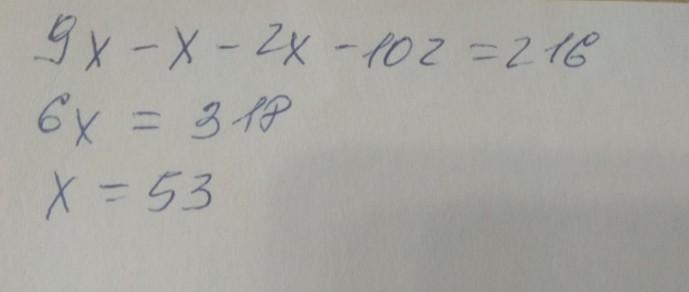 9x - x - 2x - 102 = 216
6x = 318
x = 53